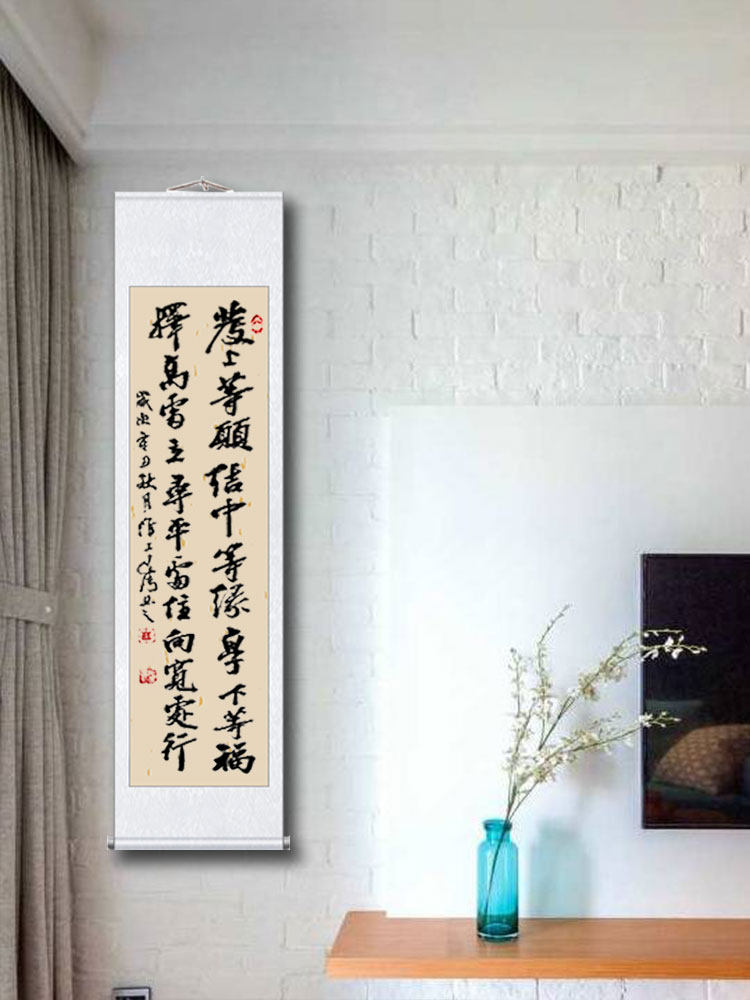 發上等願結中等緣享下等福
擇高處立尋平處住向寬處行
歲次辛丑秋月